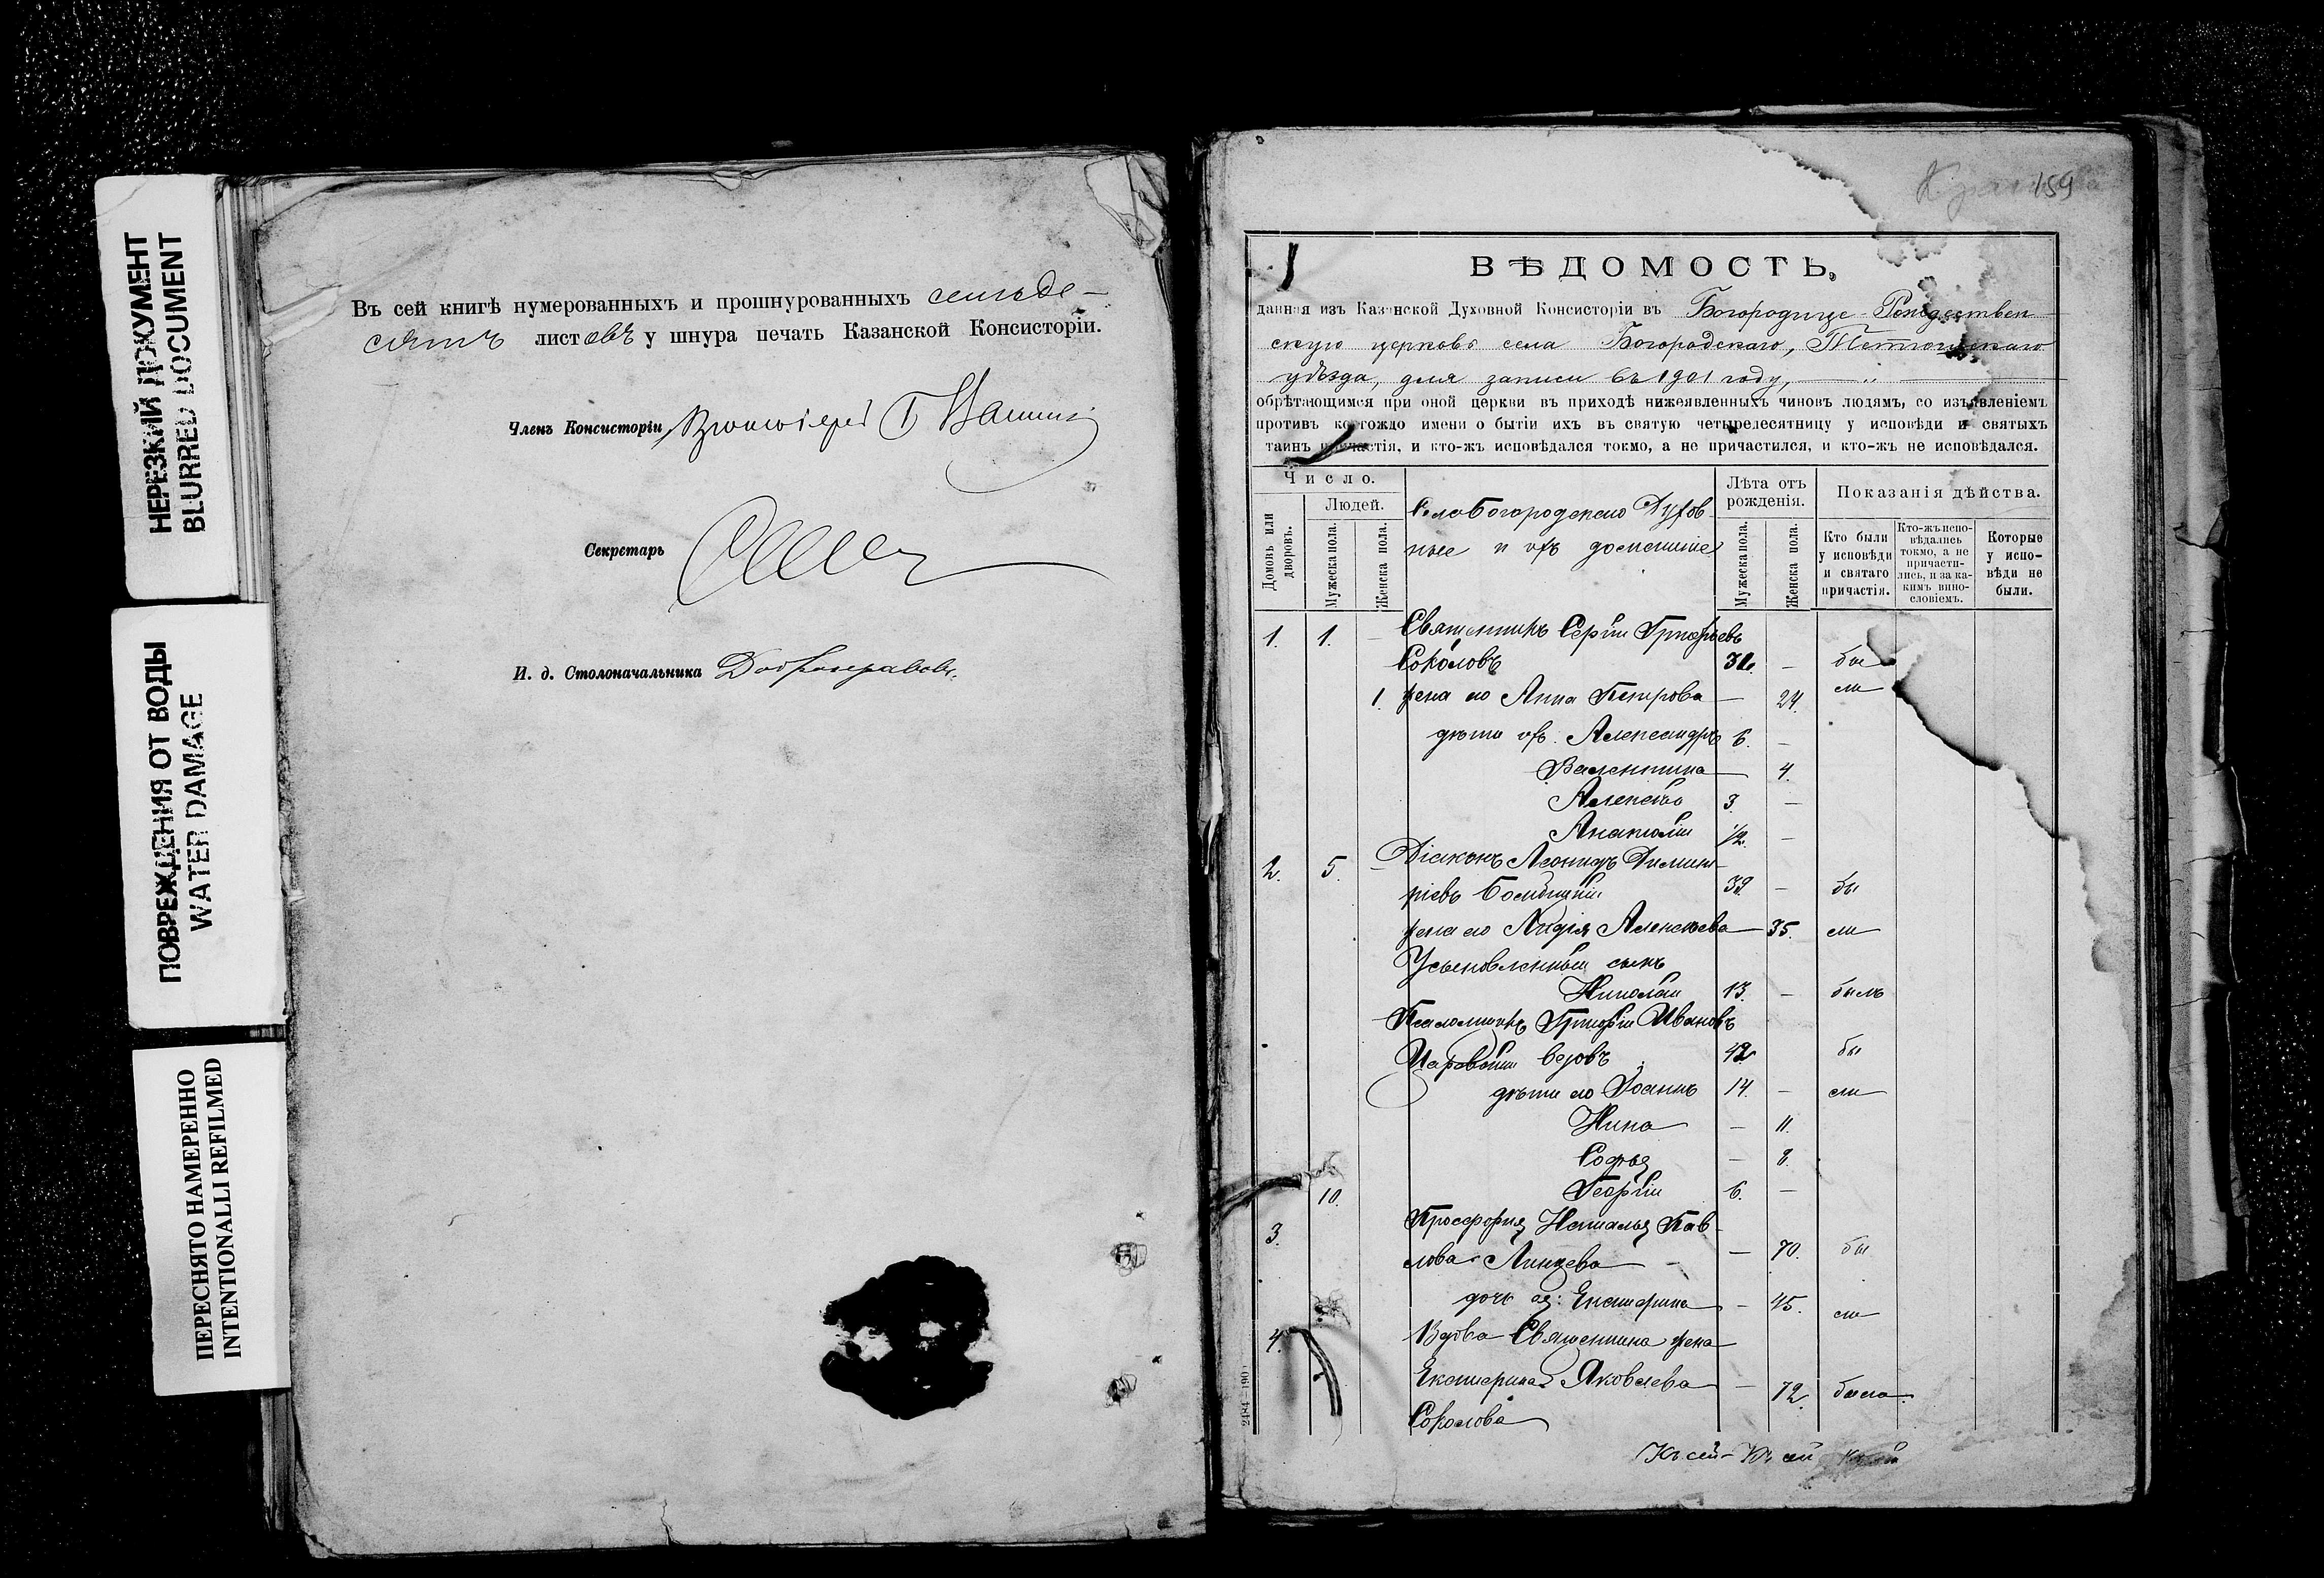 НЕРЕЗКИЙ ДОКУМЕНТ
BLURRED DOCUMENT
ПОВРЕЖДЕНИЯ ОТ ВОДЫ
WATER DAMAGE
ПЕРЕСНЯТО НАМЕРЕННО
INTENTIONALLI REFILMED
Въ сей книгѣ нумерованныхъ и прошнурованныхъ семьде-
сятъ листовъ у шнура печать Казанской Консисторіи.
Членъ Консисторіи Протоіерей
Секретарь
И. д. Столоначальника Добронравовъ.
159
ВѢДОМОСТЬ,
данная изъ Казанской Духовной Консисторіи въ Богородице-Рождествен
скую церковь села Богородскаго, Тетюшскаго
уѣзда, для записи въ 1901 году,
обрѣтающимся при оной церкви въ приходѣ нижеявленныхъ чиновъ людямъ, со изъявленіемъ
противъ коегождо имени о бытіи ихъ въ святую четыредесятницу у исповѣди и святыхъ
таинъ причастія, и кто-жъ исповѣдался токмо, а не причастился, и кто-жъ не исповѣдался.
Число.
Домовъ или дворовъ.
Людей.
Мужеска пола.
Женска пола.
Село Богородское Духов
ные и ихъ домашніе
Лѣта отъ рожденія.
Мужеска пола.
Женска пола.
Показанія дѣйства.
Кто были у исповѣди и святаго причастія.
Кто-жъ испо-вѣдались токмо, а не причасти-лись, и за ка-кимъ вино-словіемъ.
Которые у испо-вѣди не были.
1. 1. – Священникъ Сергій Григорьевъ
Соколовъ – бы
1. жена его Анна Петрова – 24. ли
дѣти ихъ. Александръ 6. –
Валентина – 4.
Алексѣй 3. –
Анатолій 1/2. –
2. 5. – Діаконъ Леонидъ Димит-
ріевъ 39. – бы
жена его Лидія Алексѣева – 35. ли
Усыновленный сынъ
Николай 13. – былъ
Псаломщикъ Григорій Ивановъ
вдовъ 42 бы
дѣти его Іоаннъ 14. – ли
Нина – 11.
Софья – 8.
10. Георгій 6. –
3. Просфорня Наталья Пав-
лова – 70. бы
дочь ея: Екатерина – 45. ли
4. Вдова Священника жена
Екатерина Яковлева – 72. была.
Соколова
Къ сей – Къ сей
2484–190